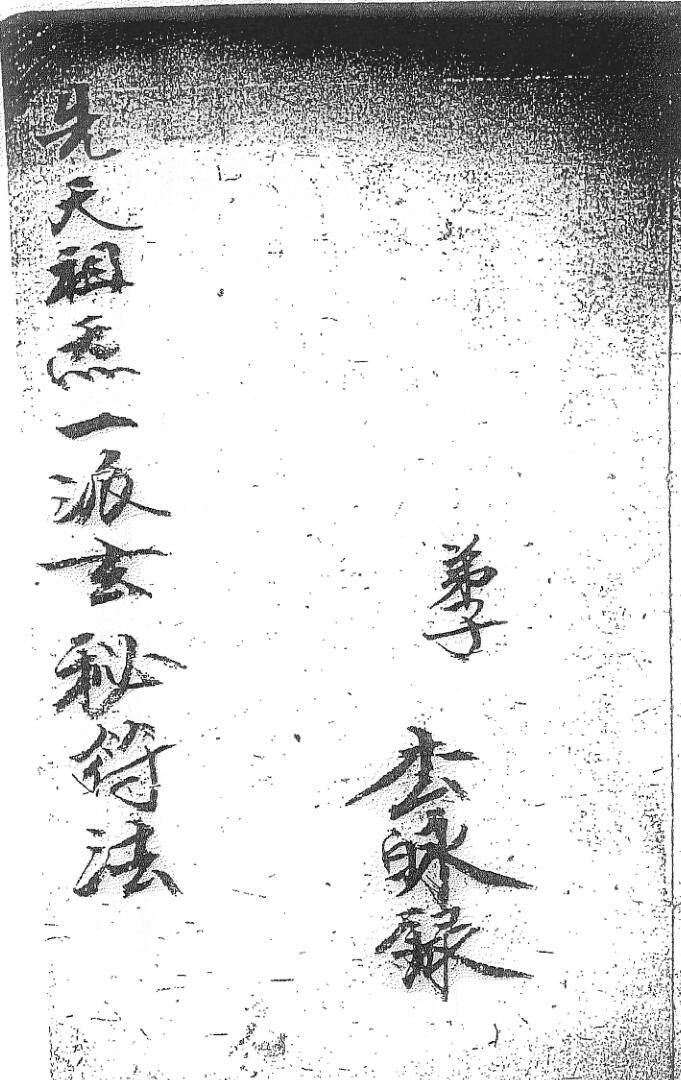 弟子 玄㫝錄
先天祖炁一派玄秘符法